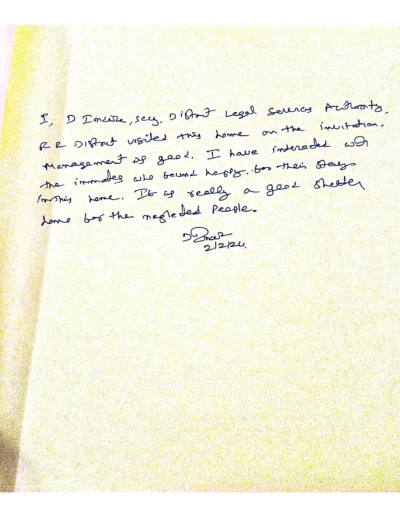 I, D , secy. District Legal Services Authority,
R R District visited this home on the invitation.
Management is good. I have interacted with
the inmates who bound happy. for their stay
in this home. It is really a good shelter
home for the neglected people.
2/2/24.